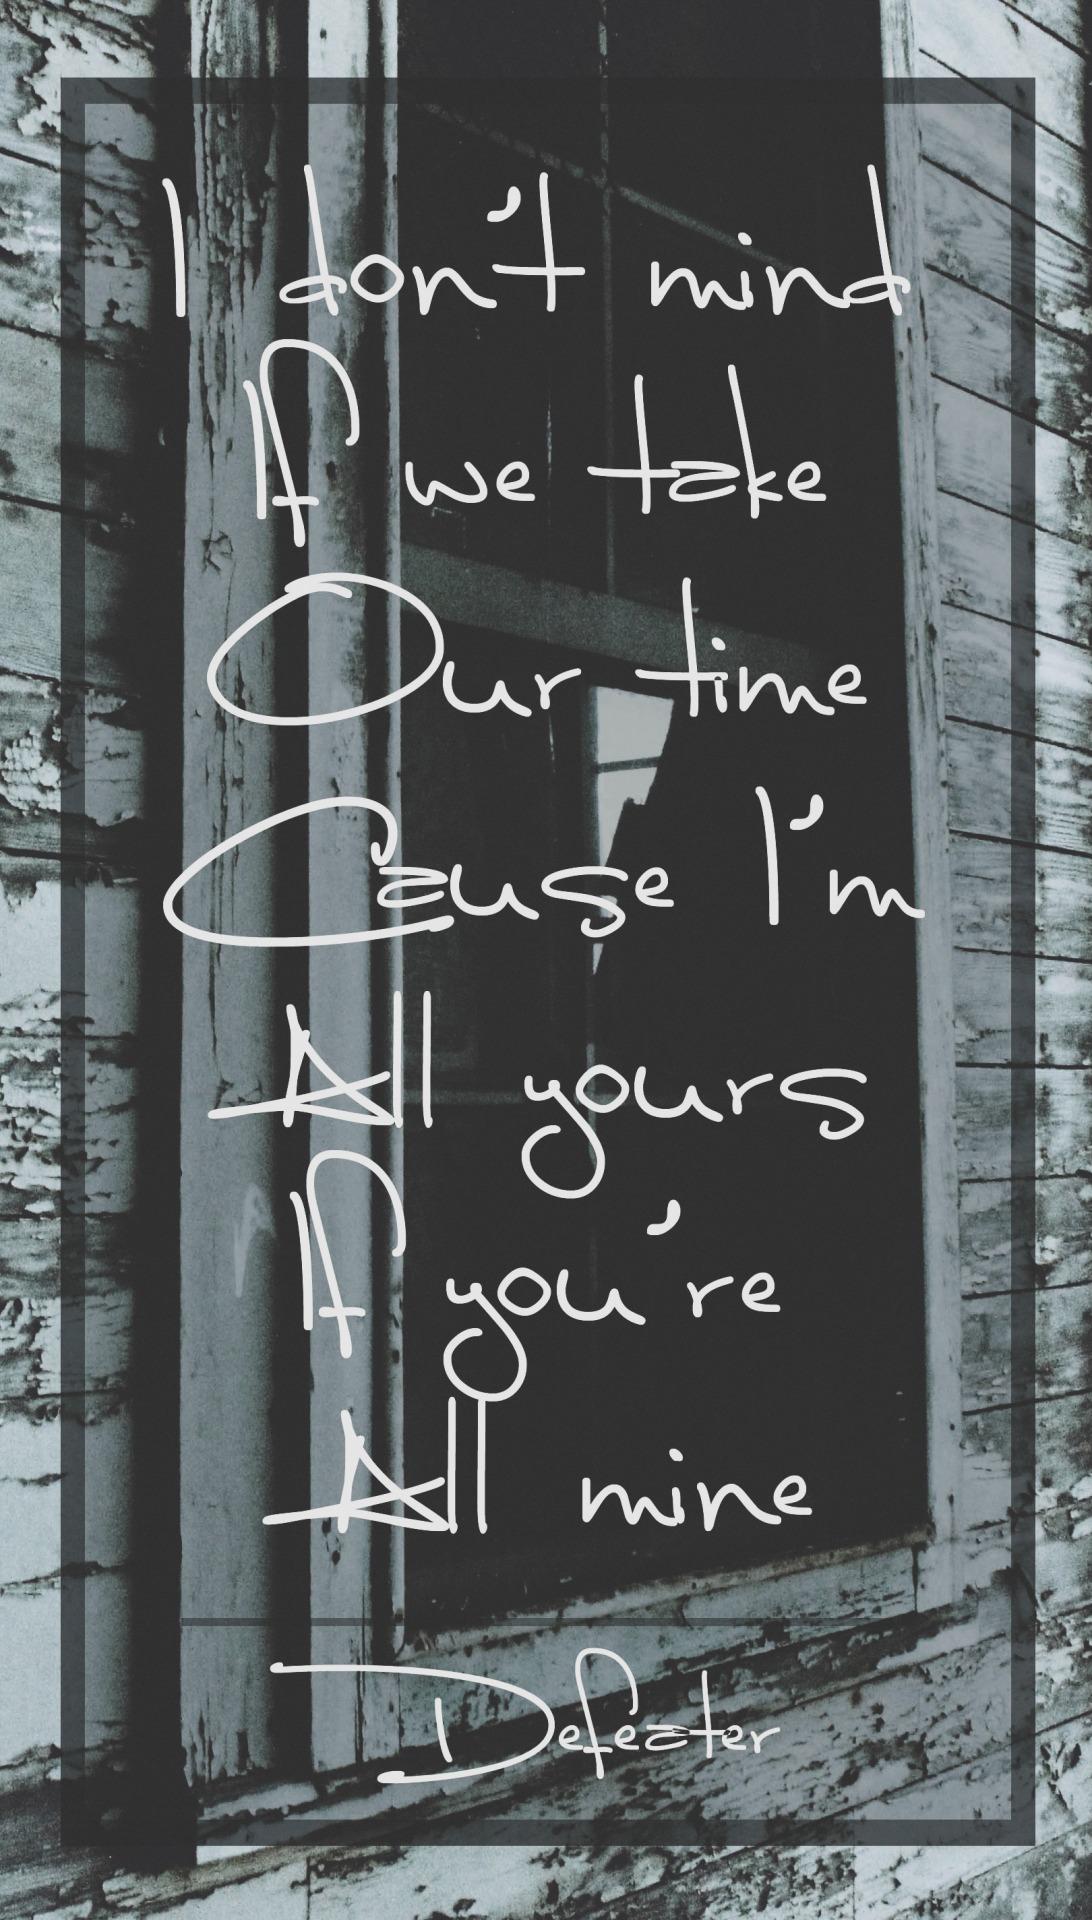 I don't mind
If we take
Our time
Cause I'm
All yours
If you're
All mine
Defeater